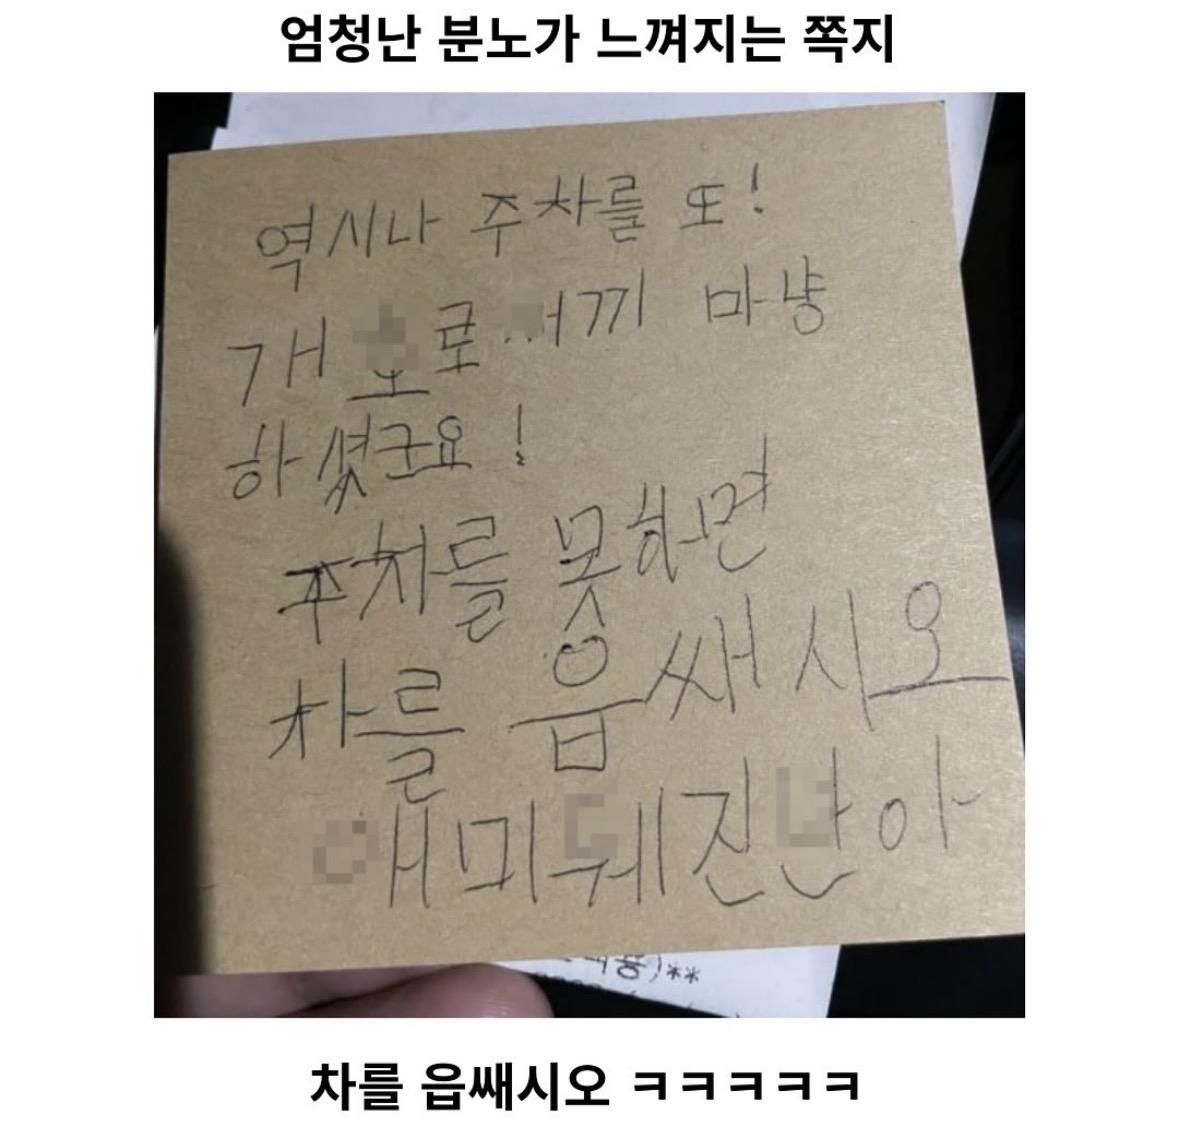 엄청난 분노가 느껴지는 쪽지
역시나 주차를 또!
개 호로 끼 마냥
하셨군요!
주차를 못하면
차를 읍쌔시오
애미뒈진년아
차를 읍쌔시오 ㅋㅋㅋㅋㅋ